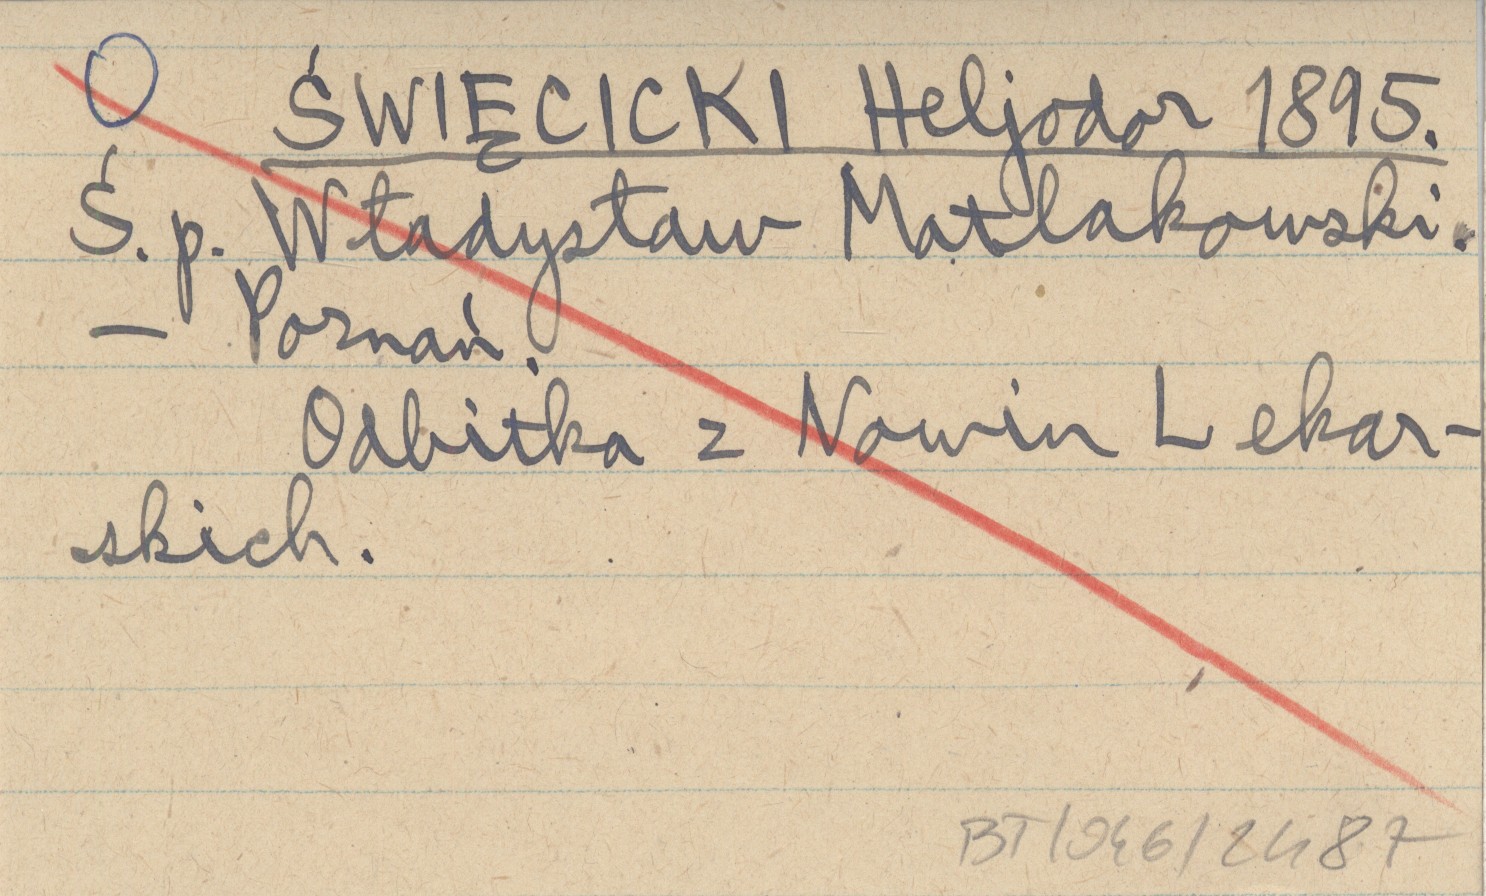 ŚWIĘCICKI Heljodor 1895.
Ś.p. Władysław Matlakowski.
— Poznań.
Odbitka z Nowin Lekar-
skich.
BT/046/2487